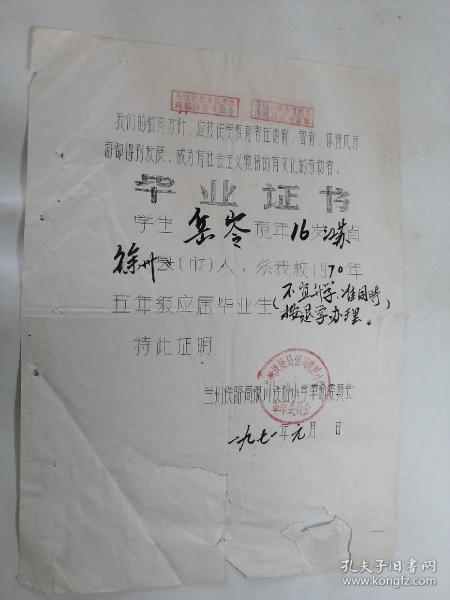 我们的教育方针，应该使受教育者在德育，智育，体育几方
面都得到发展，成为有社会主义觉悟的有文化的劳动者。
毕业证书
学生 岳岑 现年16岁江苏省
徐州县(市)人，系我校1970年
五年级应届毕业生(不宜升学、准同时
按退学办理。)
特此证明
兰州铁路局银川铁路小学革命委员会
一九七一年元月 日
孔夫子旧书网
www.kongfz.com